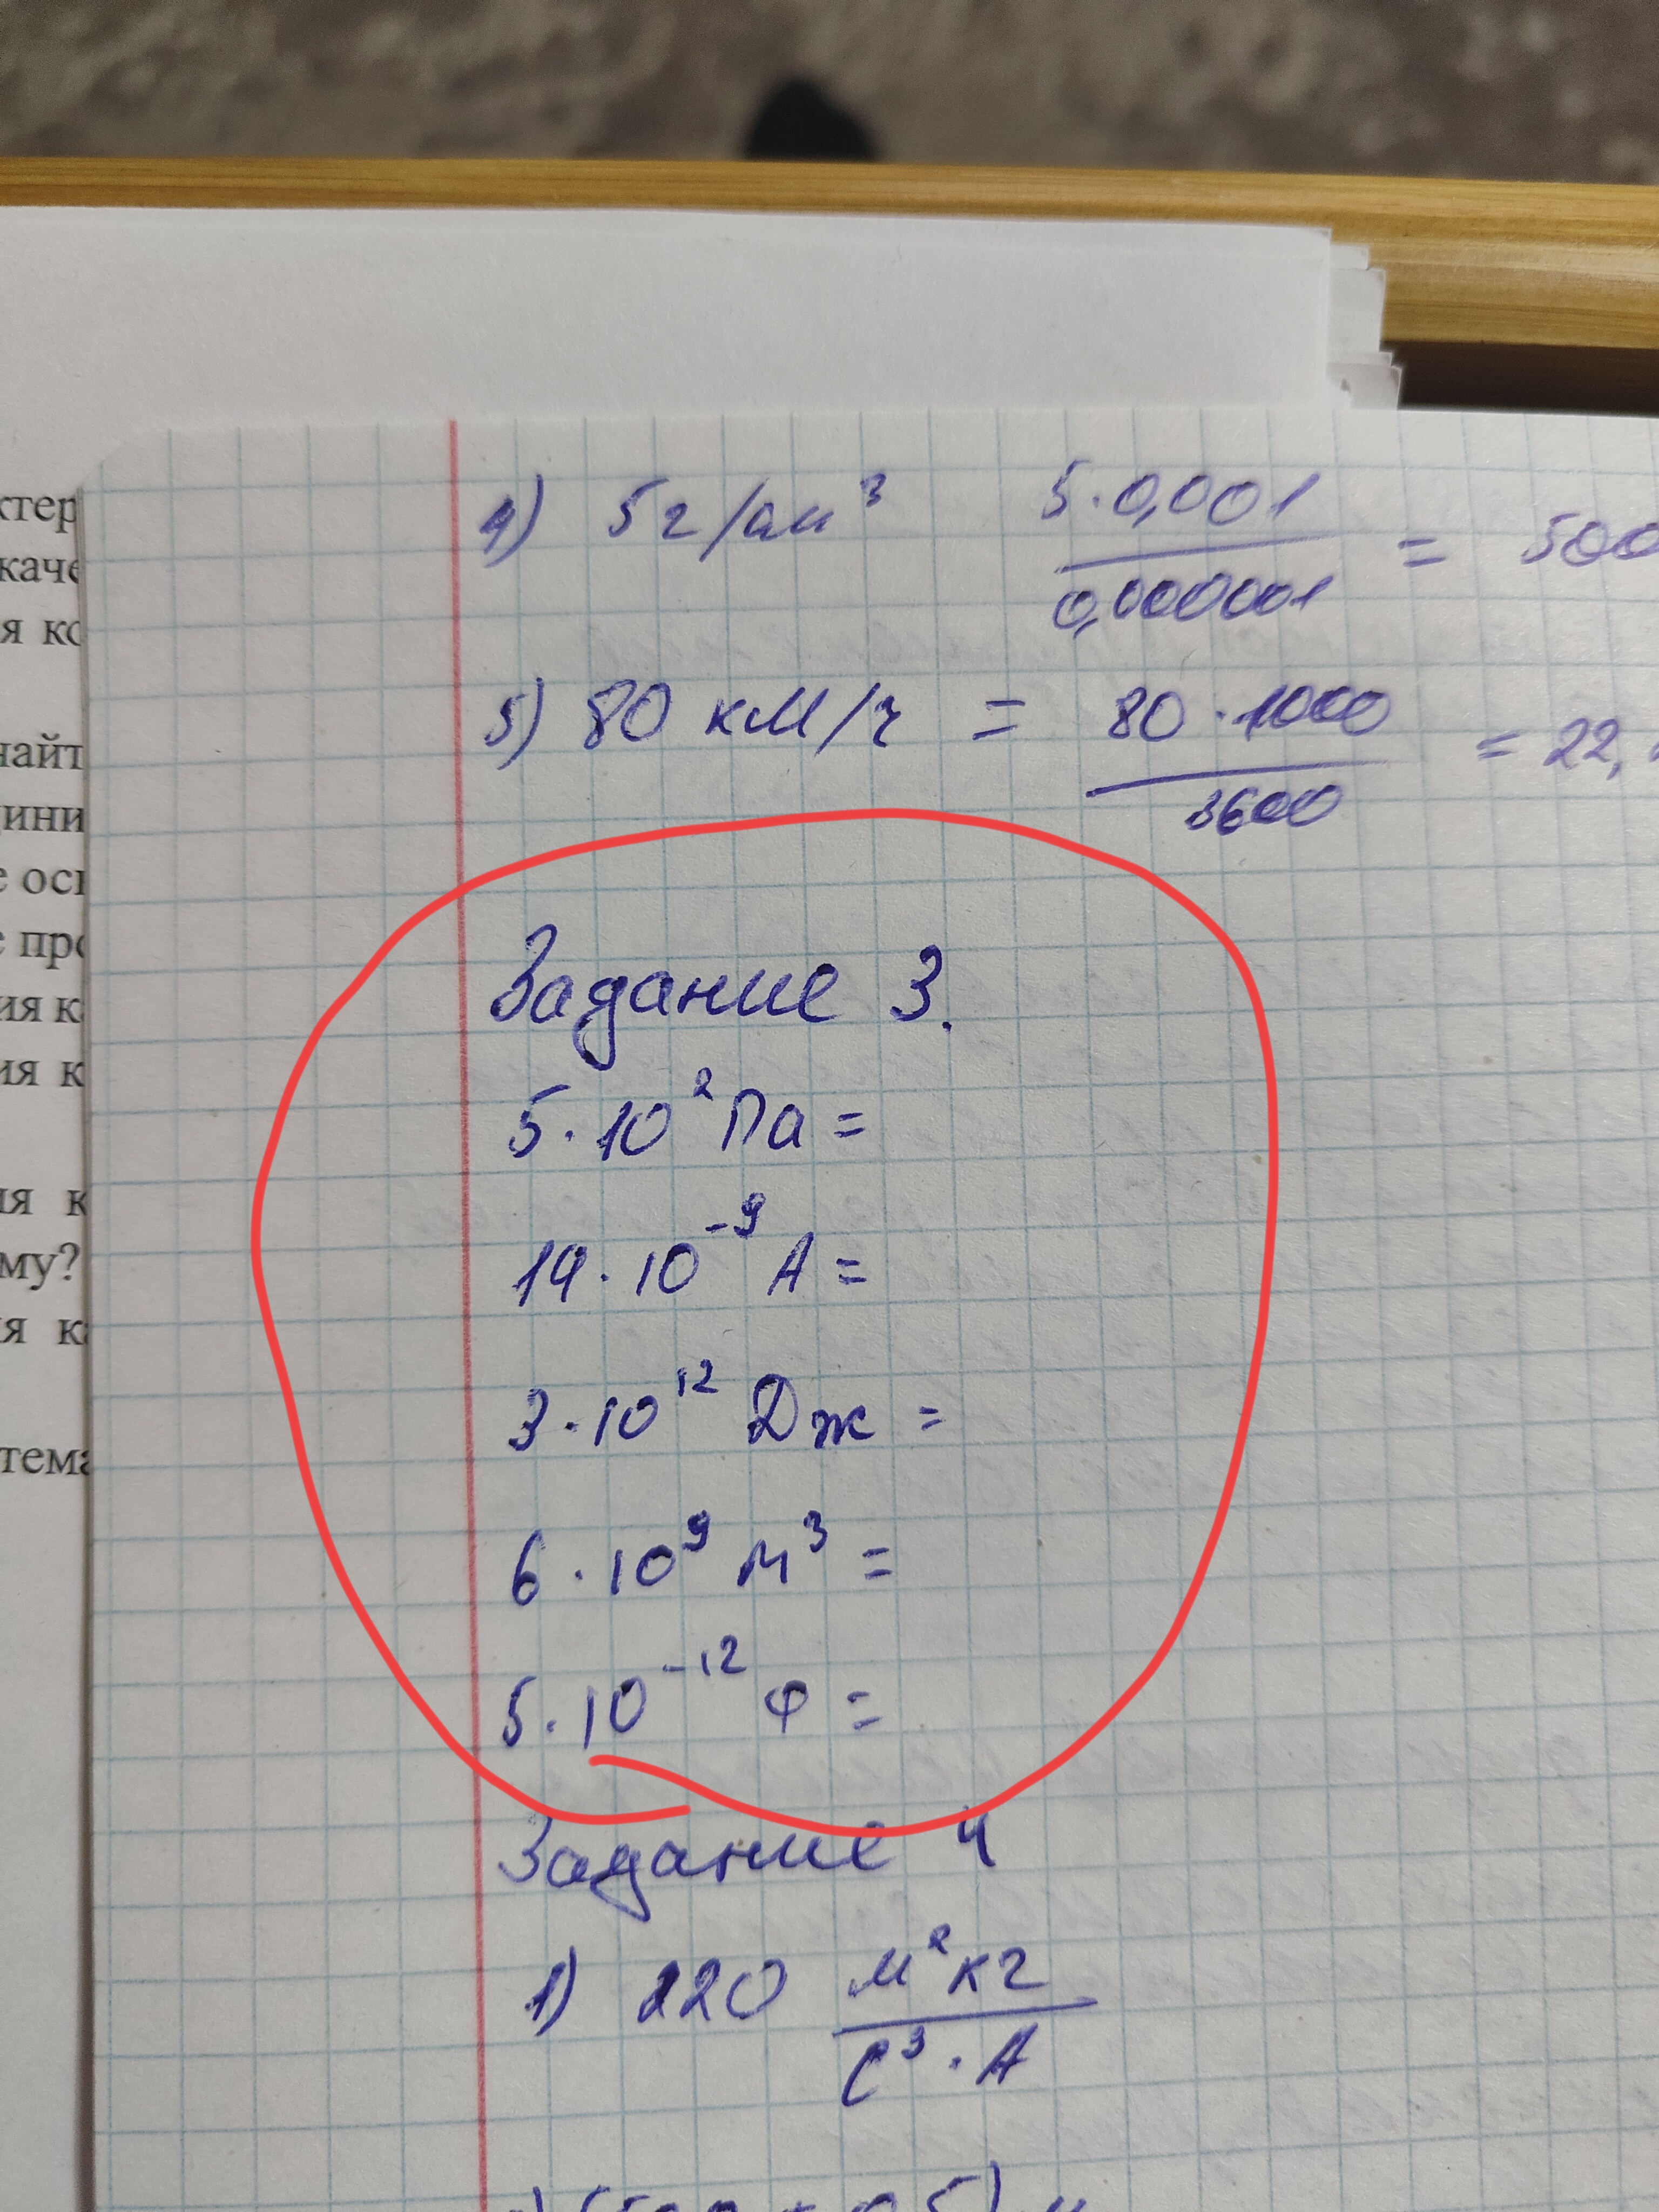 ктер
каче
я ко
найт
дини
е осн
е про
ия к
ия к
ия к
му?
ия ка
тема
4) 5 г/см³ 5·0,001/0,000001 = 500
5) 80 км/ч = 80·1000/3600 = 22,
Задание 3.
5·10² Па =
14·10⁻⁹ А =
3·10¹² Дж =
6·10⁹ м³ =
5·10⁻¹² Ф =
Задание 4
1) 220 м²кг/с³·А